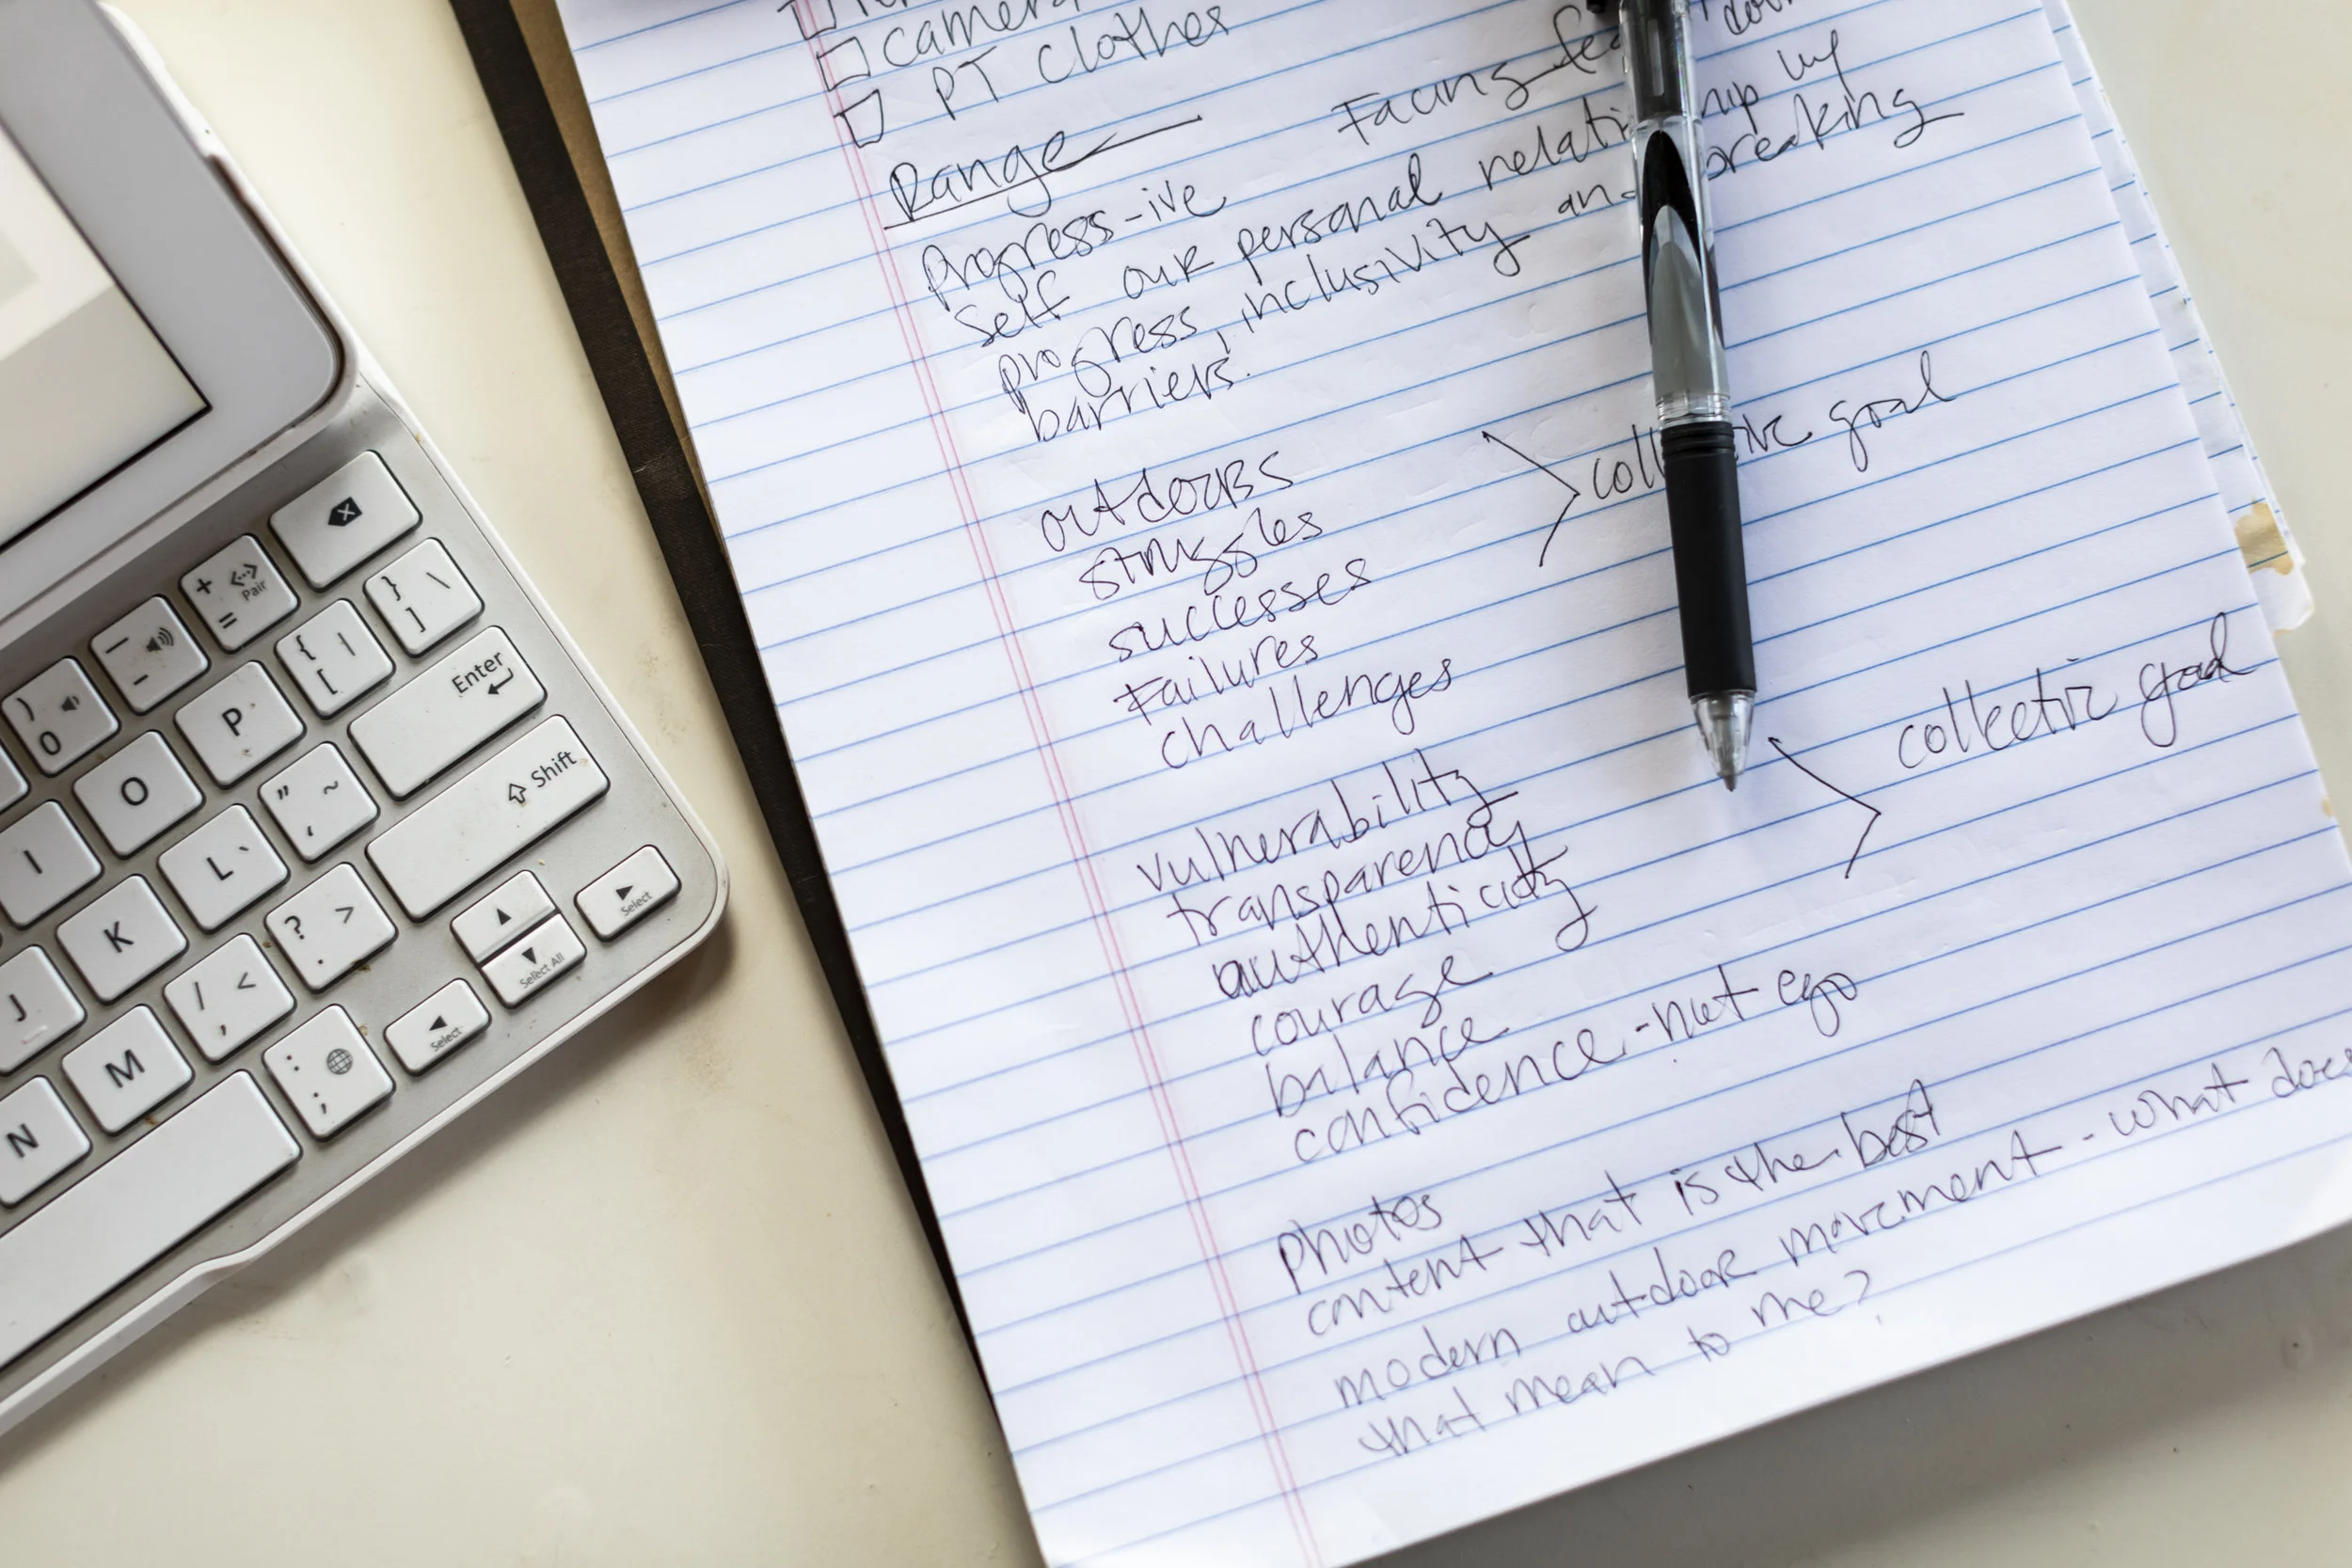 camera
PT Clothes
Range
Facing
Progress-ive
self our personal relationship by
progress, inclusivity and breaking
barriers.
outdoors
struggles
successes
Failures
challenges
collective goal
vulnerability
transparency
authenticity
courage
balance
confidence - not ego
collective goal
photos
content that is the best
modern outdoor movement - what does
that mean to me?
+ = Pair
- _
} \ ]
{ | [
) 0
P
Enter
O
" ~ '
Shift
I
L `
? > .
K
/ < ,
J
M
: ;
N
Select
Select All
Select